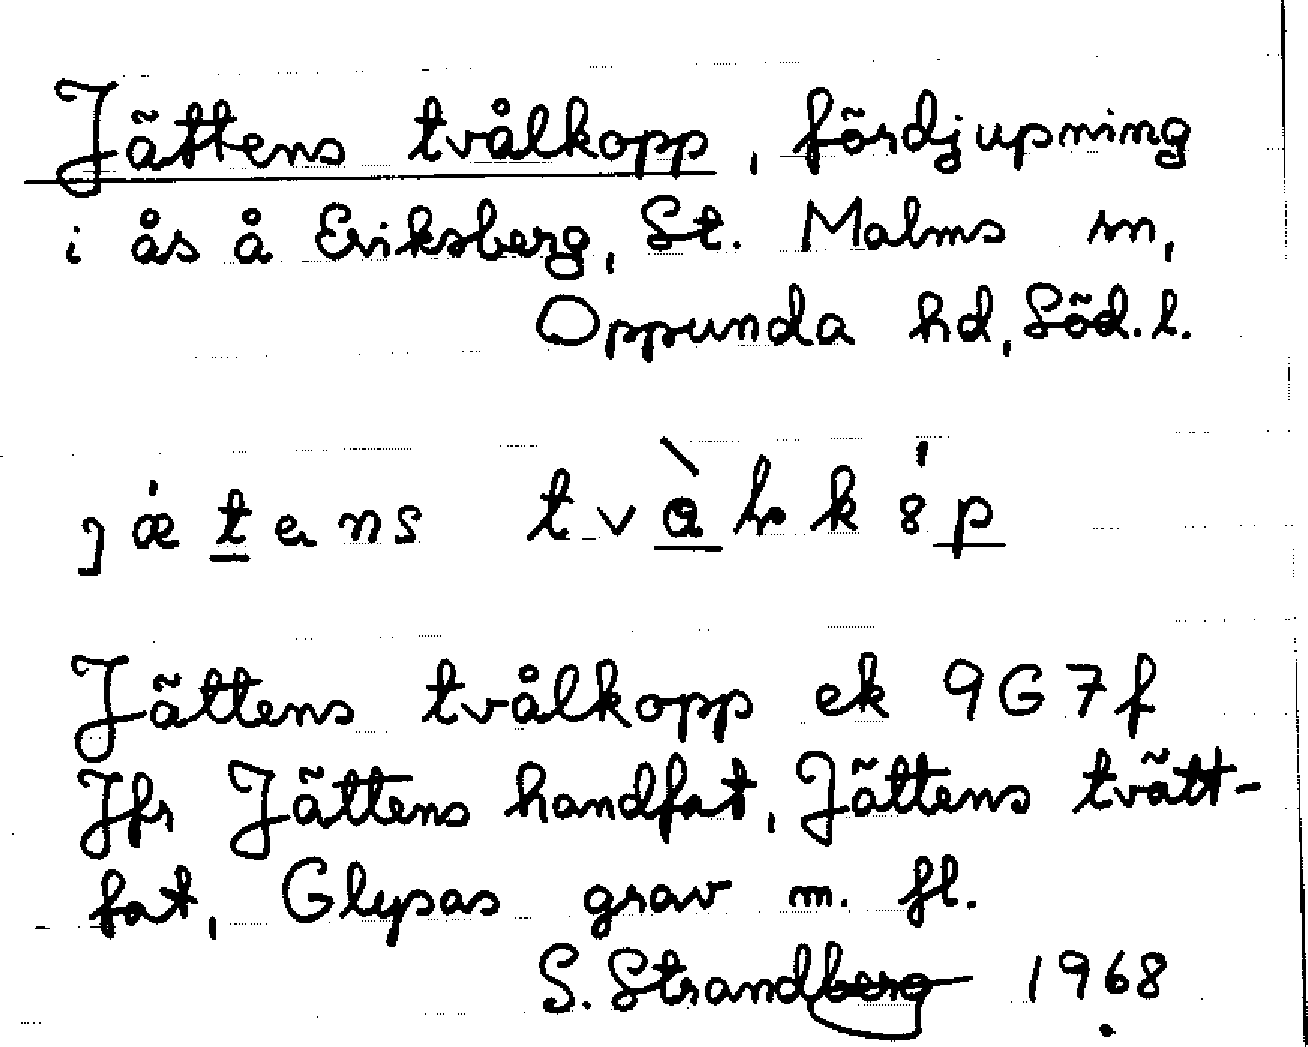 Jättens tvålkopp, fördjupning
i ås å Eriksberg, St. Malms sn,
Oppunda hd, Söd. l.
Jättens tvålkopp ek 9G7f
Jfr Jättens handfat, Jättens tvätt-
fat, Glysas grav m. fl.
S. Strandberg 1968